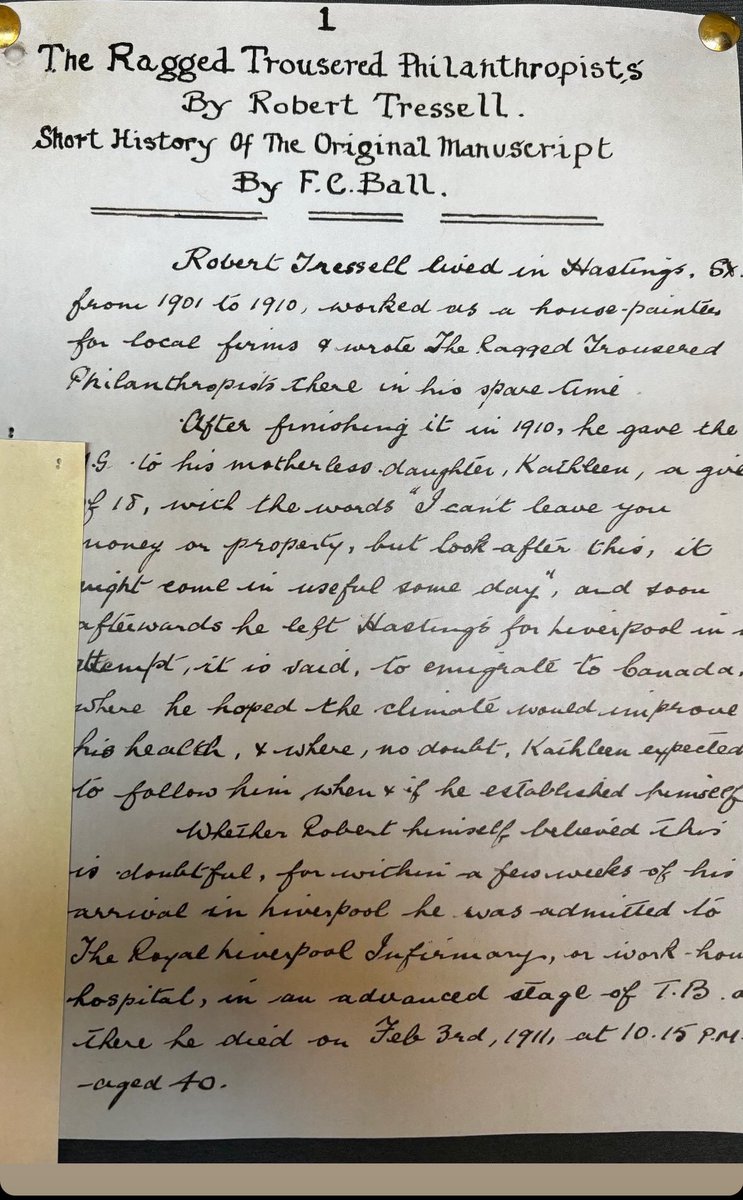 1
The Ragged Trousered Philanthropists
By Robert Tressell.
Short History Of The Original Manuscript
By F.C. Ball.
Robert Tressell lived in Hastings, SX.
from 1901 to 1910, worked as a house-painter
for local firms & wrote The Ragged Trousered
Philanthropists there in his spare time
After finishing it in 1910, he gave the
.S. to his motherless daughter, Kathleen, a
of 18, with the words "I can't leave you
money or property, but look after this, it
might come in useful some day", and soon
afterwards he left Hastings for Liverpool in
attempt, it is said, to emigrate to Canada,
where he hoped the climate would improve
his health, & where, no doubt, Kathleen expected
to follow him when & if he established himself
Whether Robert himself believed this
is doubtful, for within a few weeks of his
arrival in Liverpool he was admitted to
The Royal Liverpool Infirmary, or work-hou
hospital, in an advanced stage of T.B. a
there he died on Feb 3rd, 1911, at 10.15 P.M.
-aged 40.